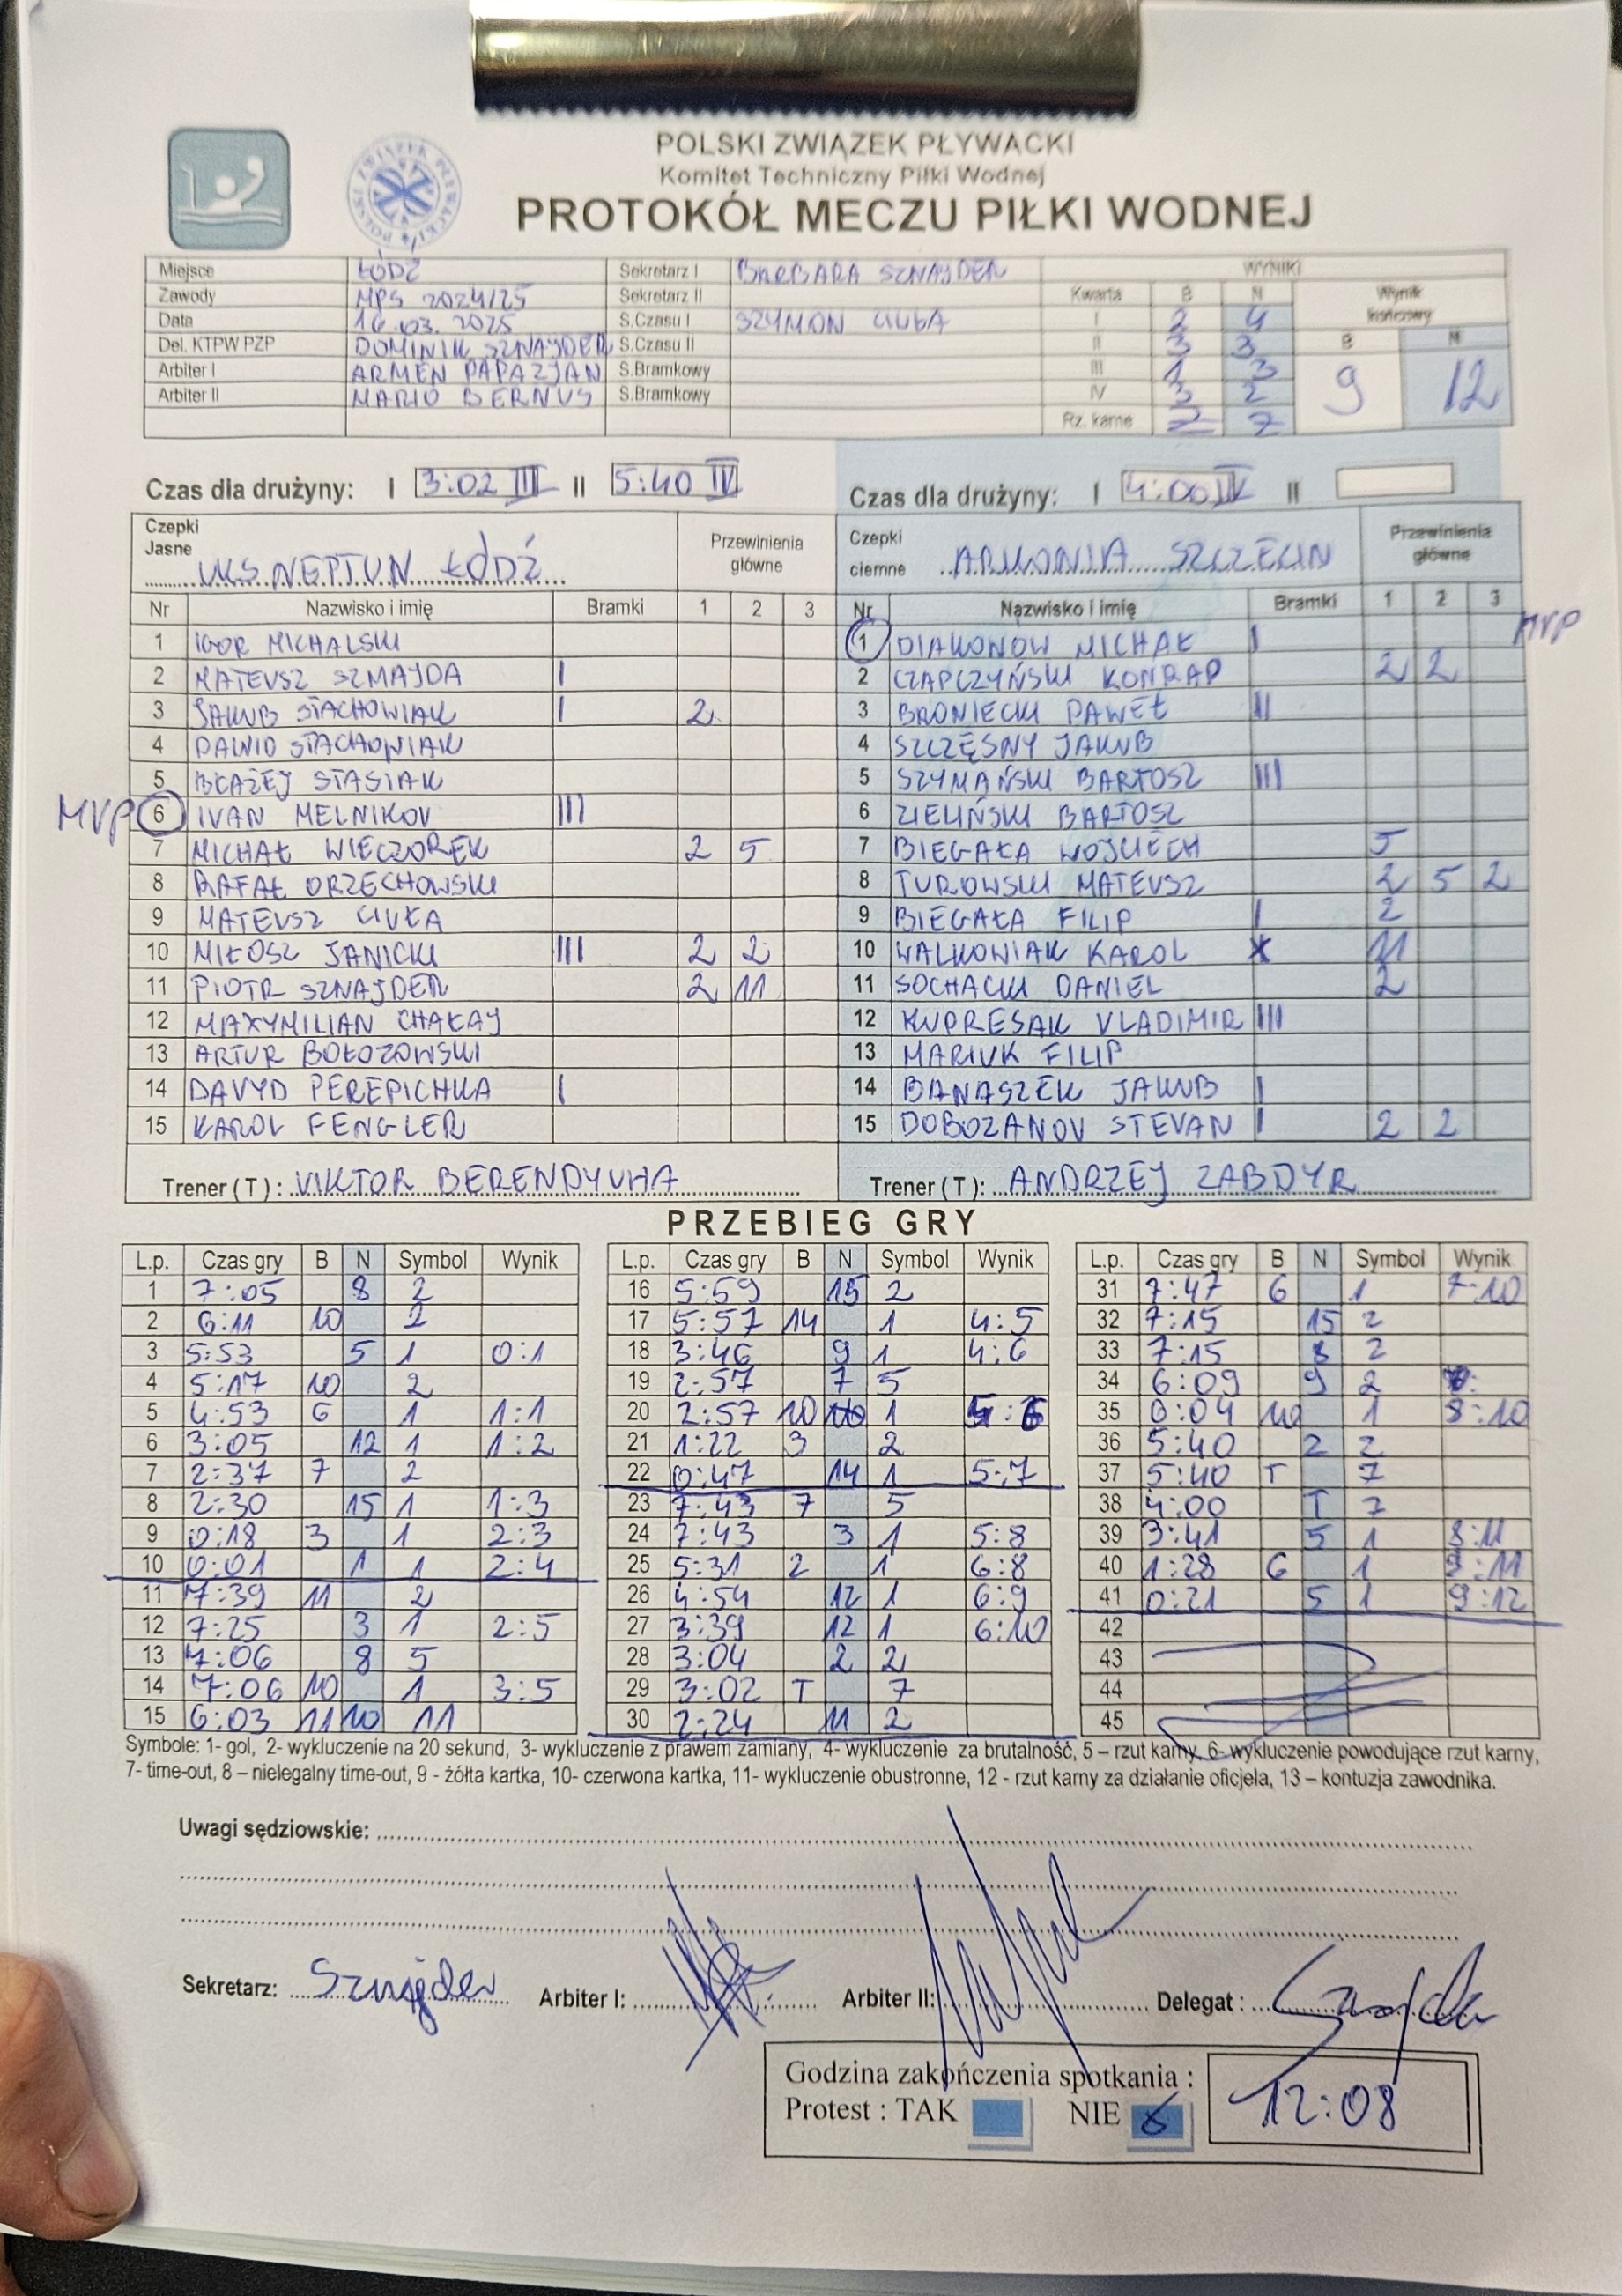 POLSKI ZWIĄZEK PŁYWACKI
Komitet Techniczny Piłki Wodnej
PROTOKÓŁ MECZU PIŁKI WODNEJ
Miejsce ŁÓDŹ Sekretarz I BARBARA SZNAJDER WYNIKI
Zawody MPS 2024/25 Sekretarz II Kwarta B N Wynik końcowy
Data 16.03.2025 S.Czasu I SZYMON I 2 4
Del. KTPW PZP DOMINIK SZNAJDER S.Czasu II II 3 3 B N
Arbiter I ARMEN PAPAZJAN S.Bramkowy III 1 3 9 12
Arbiter II MARIO BERNUS S.Bramkowy IV 3 2
Rz. karne
Czas dla drużyny: I 3:02 III II 5:40 IV
Czas dla drużyny: I 4:00 IV II
Czepki Jasne UKS NEPTUN ŁÓDŹ Przewinienia główne
Nr Nazwisko i imię Bramki 1 2 3
1 IGOR MICHALSKI
2 MATEUSZ SZMAJDA I
3 JAKUB STACHOWIAK I 2
4 DAWID STACHOWIAK
5 BŁAŻEJ STASIAK
MVP 6 IVAN MELNIKOV III
7 MICHAŁ WIECZOREK 2 5
8 RAFAŁ ORZECHOWSKI
9 MATEUSZ CIUŁA
10 MIŁOSZ JANICKI III 2 2
11 PIOTR SZNAJDER 2 11
12 MAXYMILIAN CHAŁAJ
13 ARTUR BOŁOZOWSKI
14 DAVYD PEREPICHKA I
15 KAROL FENGLER
Trener ( T ) : VIKTOR BERENDYUHA
Czepki ciemne ARKONIA SZCZECIN Przewinienia główne
Nr Nazwisko i imię Bramki 1 2 3
1 DIAKONOW MICHAŁ I MVP
2 CZAPCZYŃSKI KONRAD 2 2
3 BRONIECKI PAWEŁ II
4 SZCZĘSNY JAKUB
5 SZYMAŃSKI BARTOSZ III
6 ZIELIŃSKI BARTOSZ
7 BIEGAŁA WOJCIECH 5
8 TUROWSKI MATEUSZ 2 5 2
9 BIEGAŁA FILIP I 2
10 WALKOWIAK KAROL 11
11 SOCHACKI DANIEL 2
12 KUPRESAK VLADIMIR III
13 MARIUK FILIP
14 BANASZEK JAKUB I
15 DOBOZANOV STEVAN I 2 2
Trener ( T ): ANDRZEJ ZABDYR
PRZEBIEG GRY
L.p. Czas gry B N Symbol Wynik
1 7:05 8 2
2 6:11 10 2
3 5:53 5 1 0:1
4 5:17 10 2
5 4:53 6 1 1:1
6 3:05 12 1 1:2
7 2:37 7 2
8 2:30 15 1 1:3
9 0:18 3 1 2:3
10 0:01 1 1 2:4
11 7:39 11 2
12 7:25 3 1 2:5
13 7:06 8 5
14 7:06 10 1 3:5
15 6:03 11 10 11
L.p. Czas gry B N Symbol Wynik
16 5:59 15 2
17 5:57 14 1 4:5
18 3:46 9 1 4:6
19 2:57 7 5
20 2:57 10 1 5:6
21 1:22 3 2
22 0:47 14 1 5:7
23 7:43 7 5
24 7:43 3 1 5:8
25 5:31 2 1 6:8
26 4:54 12 1 6:9
27 3:39 12 1 6:10
28 3:04 2 2
29 3:02 T 7
30 2:24 11 2
L.p. Czas gry B N Symbol Wynik
31 7:47 6 1 7:10
32 7:15 15 2
33 7:15 8 2
34 6:09 9 2
35 6:04 10 1 8:10
36 5:40 2 2
37 5:40 T 7
38 4:00 T 7
39 3:41 5 1 8:11
40 1:28 6 1 9:11
41 0:21 5 1 9:12
42
43
44
45
Symbole: 1- gol, 2- wykluczenie na 20 sekund, 3- wykluczenie z prawem zamiany, 4- wykluczenie za brutalność, 5 – rzut karny, 6- wykluczenie powodujące rzut karny,
7- time-out, 8 – nielegalny time-out, 9 - żółta kartka, 10- czerwona kartka, 11- wykluczenie obustronne, 12 - rzut karny za działanie oficjela, 13 – kontuzja zawodnika.
Uwagi sędziowskie:
Sekretarz: Sznajder Arbiter I: Arbiter II: Delegat :
Godzina zakończenia spotkania : 12:08
Protest : TAK NIE